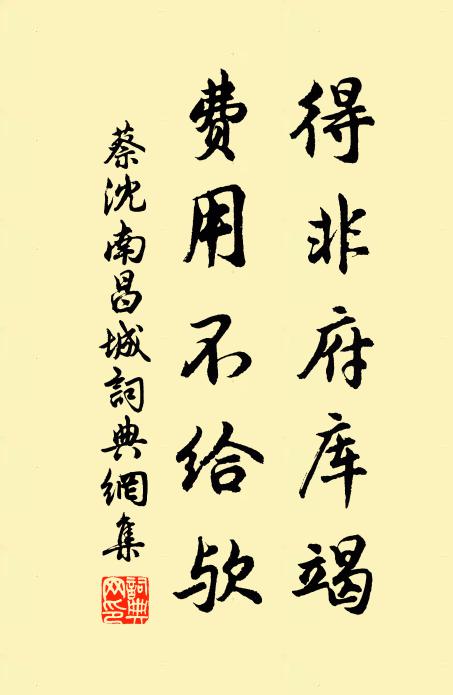 得非府库竭
费用不给欤
蔡沈南昌城詞典網集
詞典
网印